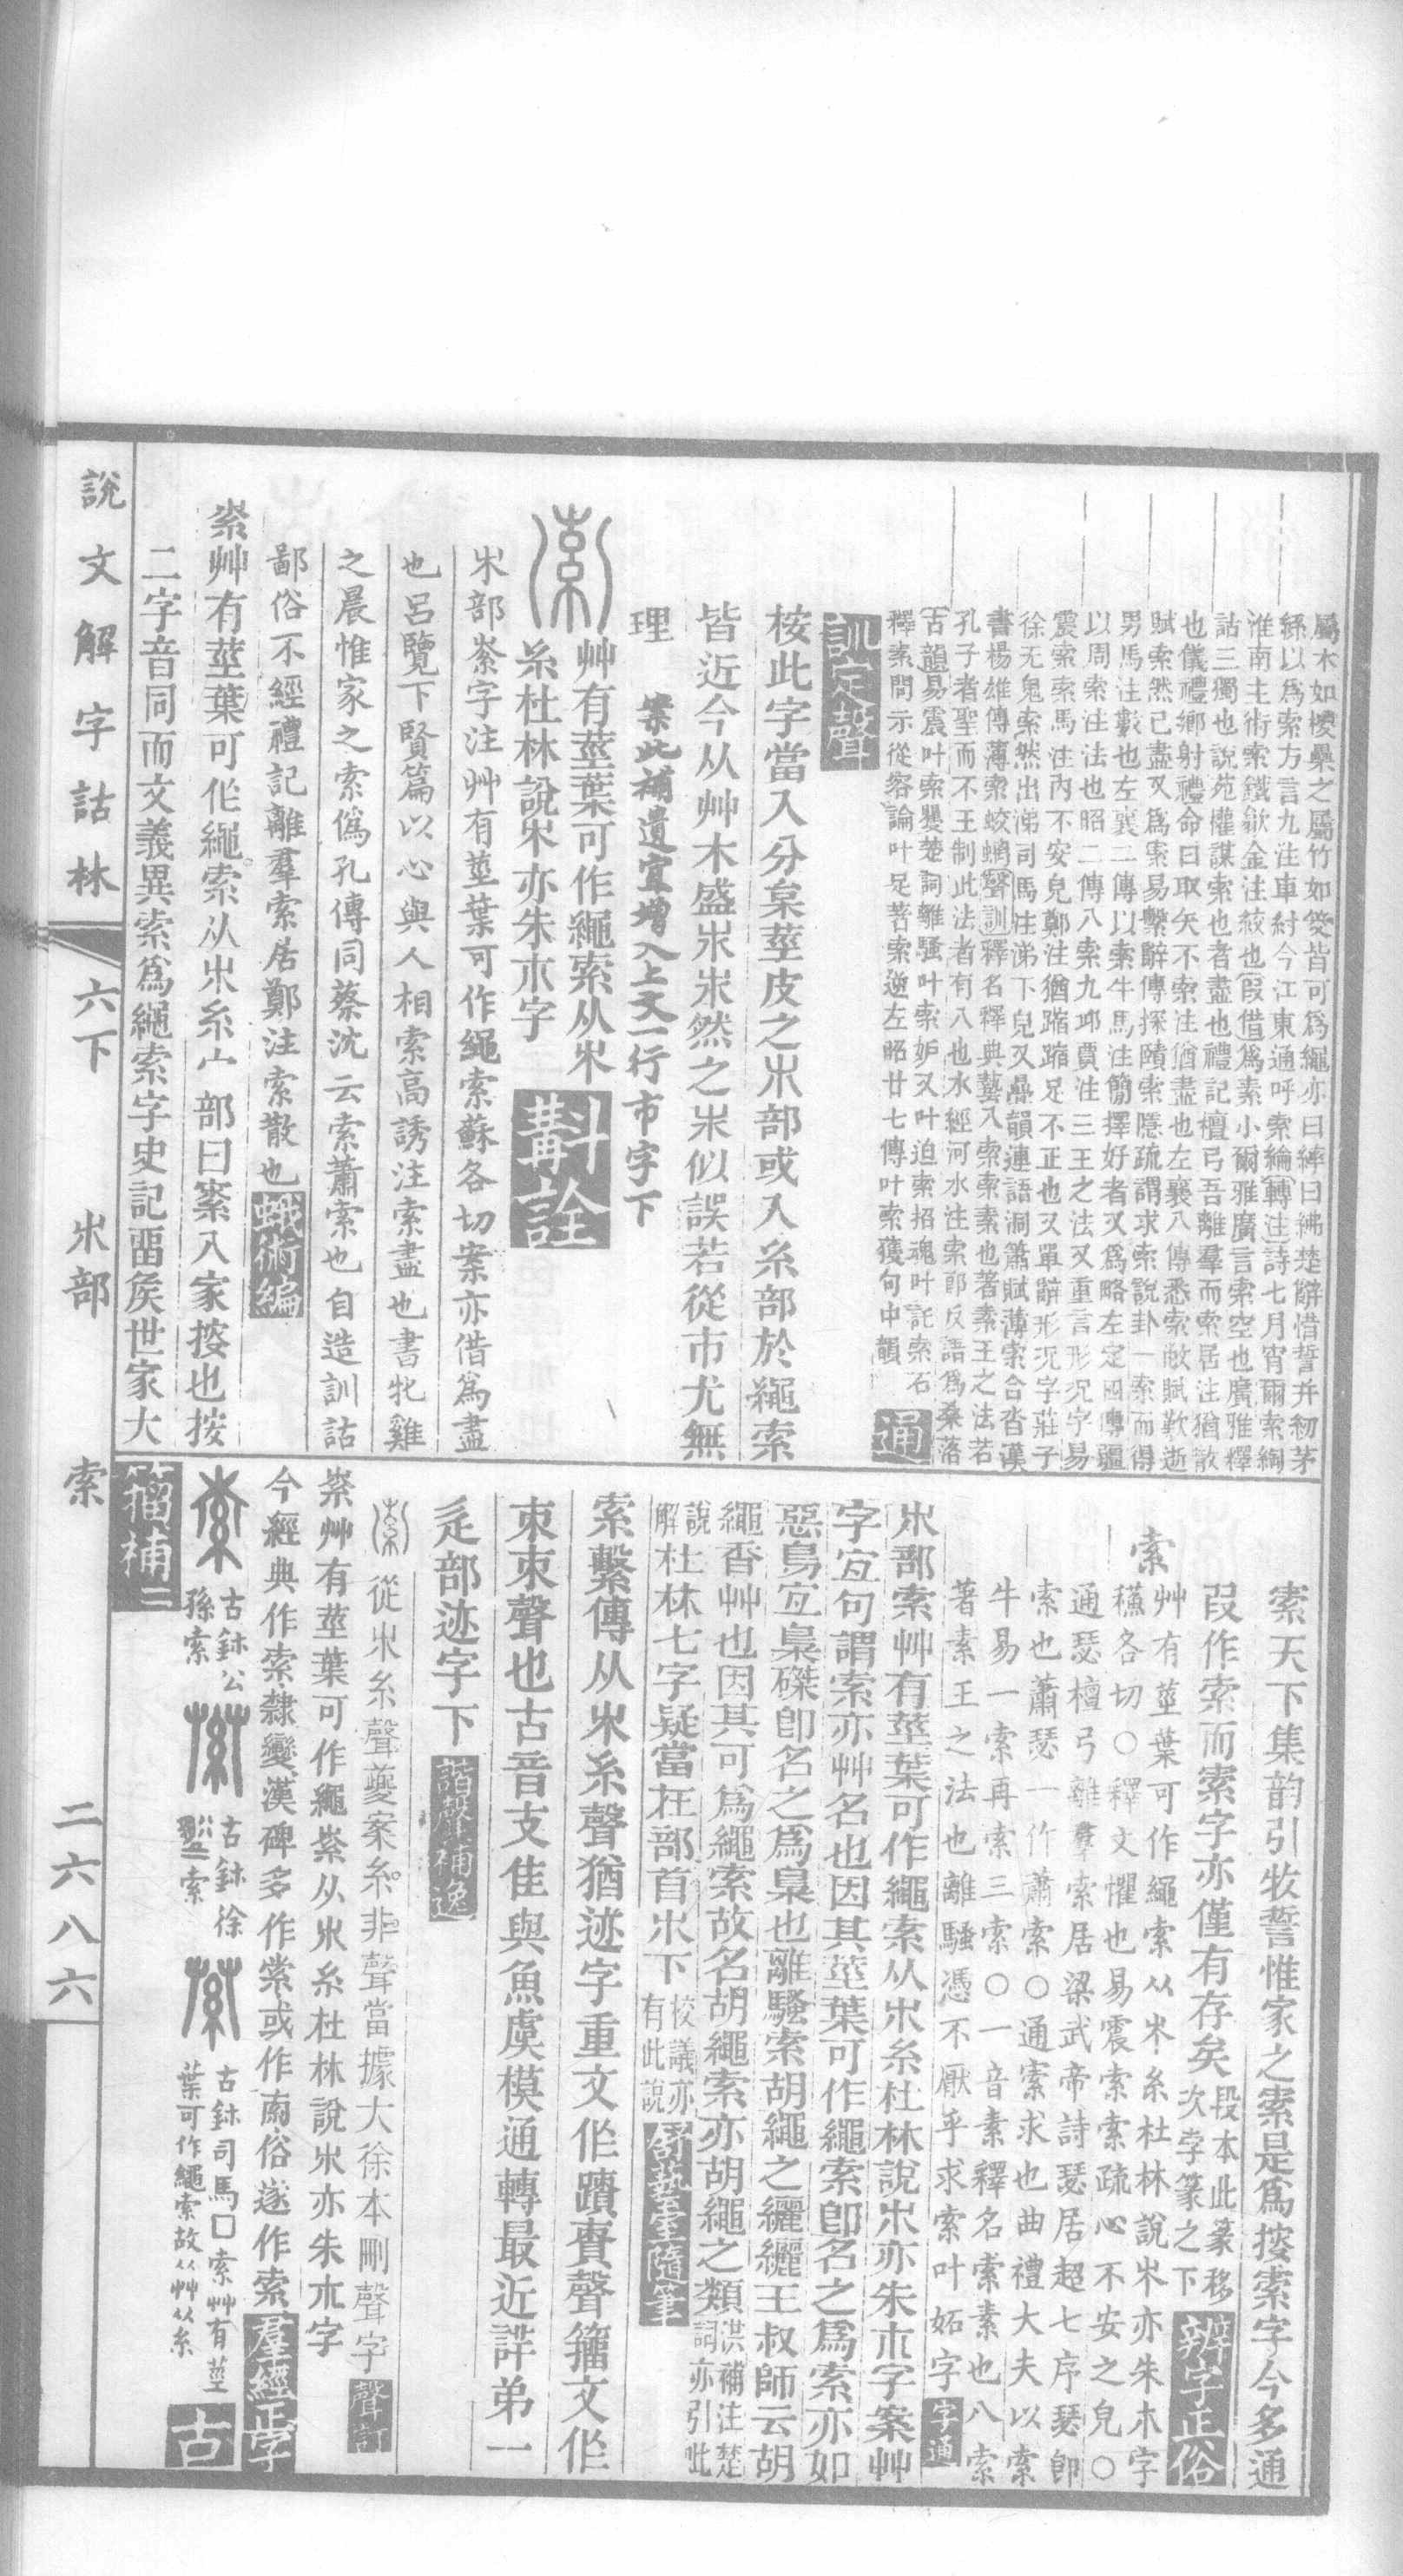 屬木如椶㮚之屬竹如筊皆可爲繩亦曰繂曰紼楚辭惜誓并紉茅
絲以爲索方言九注車紂今江東通呼索綸轉注詩七月宵爾索綯
淮南主術索鐵歙金注絞也假借爲素小爾雅廣言索空也廣雅釋
詁三獨也說苑權謀索也者盡也禮記檀弓吾離羣而索居注猶散
也儀禮鄉射禮命曰取矢不索注猶盡也左襄八傳悉索敝賦歎逝
賦索然已盡又爲㩠易繫辭傳探賾索隱疏謂求索說卦一索而得
男馬注數也左襄二傳以索牛馬注簡擇好者又爲略左定四傳疆
以周索注法也昭二傳八索九邱賈注三王之法又重言形況字易
震索索馬注內不安皃鄭注猶蹜蹜足不正也又單辭形況字莊子
徐无鬼索然出涕司馬注涕下皃又疊韻連語洞簫賦薄索合沓漢
書楊雄傳薄索蛟螭聲訓釋名釋典藝八索索素也著素王之法若
孔子者聖而不王制此法者有八也水經河水注索郎反語爲桑落
古韻易震叶索矍楚詞離騷叶索妒又叶迫索招魂叶託索石
釋素問示從容論叶足著索逆左昭廿七傳叶索獲句中韻通
訓定聲
桉此字當入分枲莖皮之𣎵部或入糸部於繩索
皆近今从艸木盛𣎵𣎵然之𣎵似誤若從巿尤無
理 案此補遺宜增入上文一行巿字下
艸有莖葉可作繩索从𣎵
糸杜林說𣎵亦朱巿字 斠詮
𣎵部索字注艸有莖葉可作繩索蘇各切案亦借爲盡
也呂覽下賢篇以心與人相索高誘注索盡也書牝雞
之晨惟家之索僞孔傳同蔡沈云索蕭索也自造訓詁
鄙俗不經禮記離羣索居鄭注索散也蛾術編
索艸有莖葉可作繩索从𣎵糸宀部曰㩠入家搜也按
二字音同而文義異索爲繩索字史記畱矦世家大
說文解字詁林 六下 𣎵部 索 二六八六
索天下集韵引牧誓惟家之索是爲搜索字今多通
叚作索而索字亦僅有存矣段本此篆移次孛篆之下辨字正俗
索
艸有莖葉可作繩索从𣎵糸杜林說𣎵亦朱木字
蘇各切○釋文懼也易震索索疏心不安之皃○
通瑟檀弓離羣索居梁武帝詩瑟居超七序瑟卽
索也蕭瑟一作蕭索○通索求也曲禮大夫以索
牛易一索再索三索○一音素釋名索素也八索
著素王之法也離騷憑不厭乎求索叶妬字字通
𣎵部索艸有莖葉可作繩索从𣎵糸杜林說𣎵亦朱巿字案艸
字宐句謂索亦艸名也因其莖葉可作繩索卽名之爲索亦如
惡鳥宐梟磔卽名之爲梟也離騷索胡繩之纚纚王叔師云胡
繩香艸也因其可爲繩索故名胡繩索亦胡繩之類洪補注楚詞亦引此
說解杜林七字疑當在部首𣎵下校議亦有此說舒藝室隨筆
索繫傳从𣎵糸聲猶迹字重文作蹟責聲籀文作
𨒪朿聲也古音支佳與魚虞模通轉最近詳弟一
辵部迹字下諧聲補逸
從𣎵糸聲夔案糸非聲當據大徐本刪聲字聲訂
索艸有莖葉可作繩索从𣎵糸杜林說𣎵亦朱巿字
今經典作索隸變漢碑多作索或作𡩡俗遂作索羣經正字
古鉥公孫索
古鉥徐索
古鉥司馬□索艸有莖葉可作繩索故从艸从糸 古
籀補二